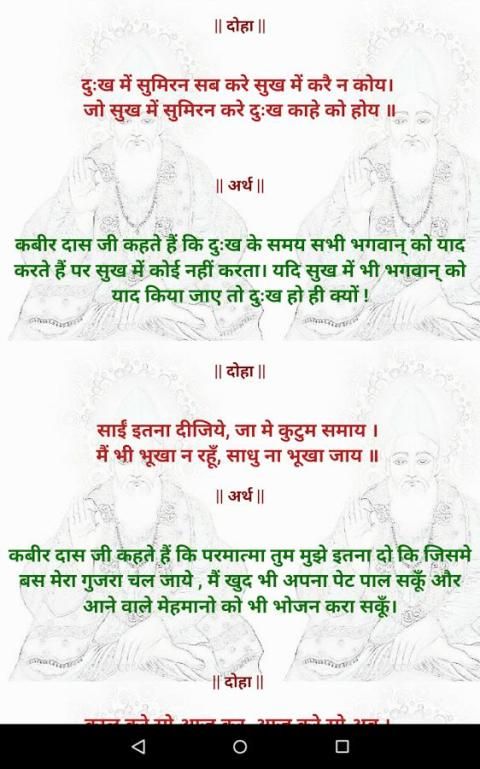 || दोहा ||
दुःख में सुमिरन सब करे सुख में करै न कोय।
जो सुख में सुमिरन करे दुःख काहे को होय ॥
|| अर्थ ||
कबीर दास जी कहते हैं कि दुःख के समय सभी भगवान् को याद
करते हैं पर सुख में कोई नहीं करता। यदि सुख में भी भगवान् को
याद किया जाए तो दुःख हो ही क्यों !
|| दोहा ||
साईं इतना दीजिये, जा मे कुटुम समाय ।
मैं भी भूखा न रहूँ, साधु ना भूखा जाय ॥
|| अर्थ ||
कबीर दास जी कहते हैं कि परमात्मा तुम मुझे इतना दो कि जिसमे
बस मेरा गुजरा चल जाये , मैं खुद भी अपना पेट पाल सकूँ और
आने वाले मेहमानो को भी भोजन करा सकूँ।
|| दोहा ||